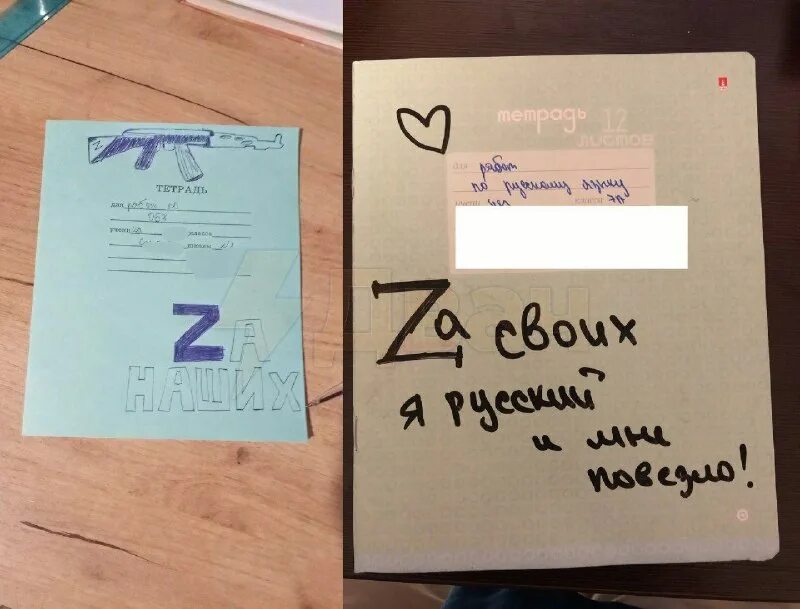 Z
ТЕТРАДЬ
для работ по
ОБЖ
класса
школы №1
ZА
НАШИХ
тетрадь 12
листов
для работ
по русскому языку
класса 7А
Zа своих
я русский
и мни
повезло!
Двач